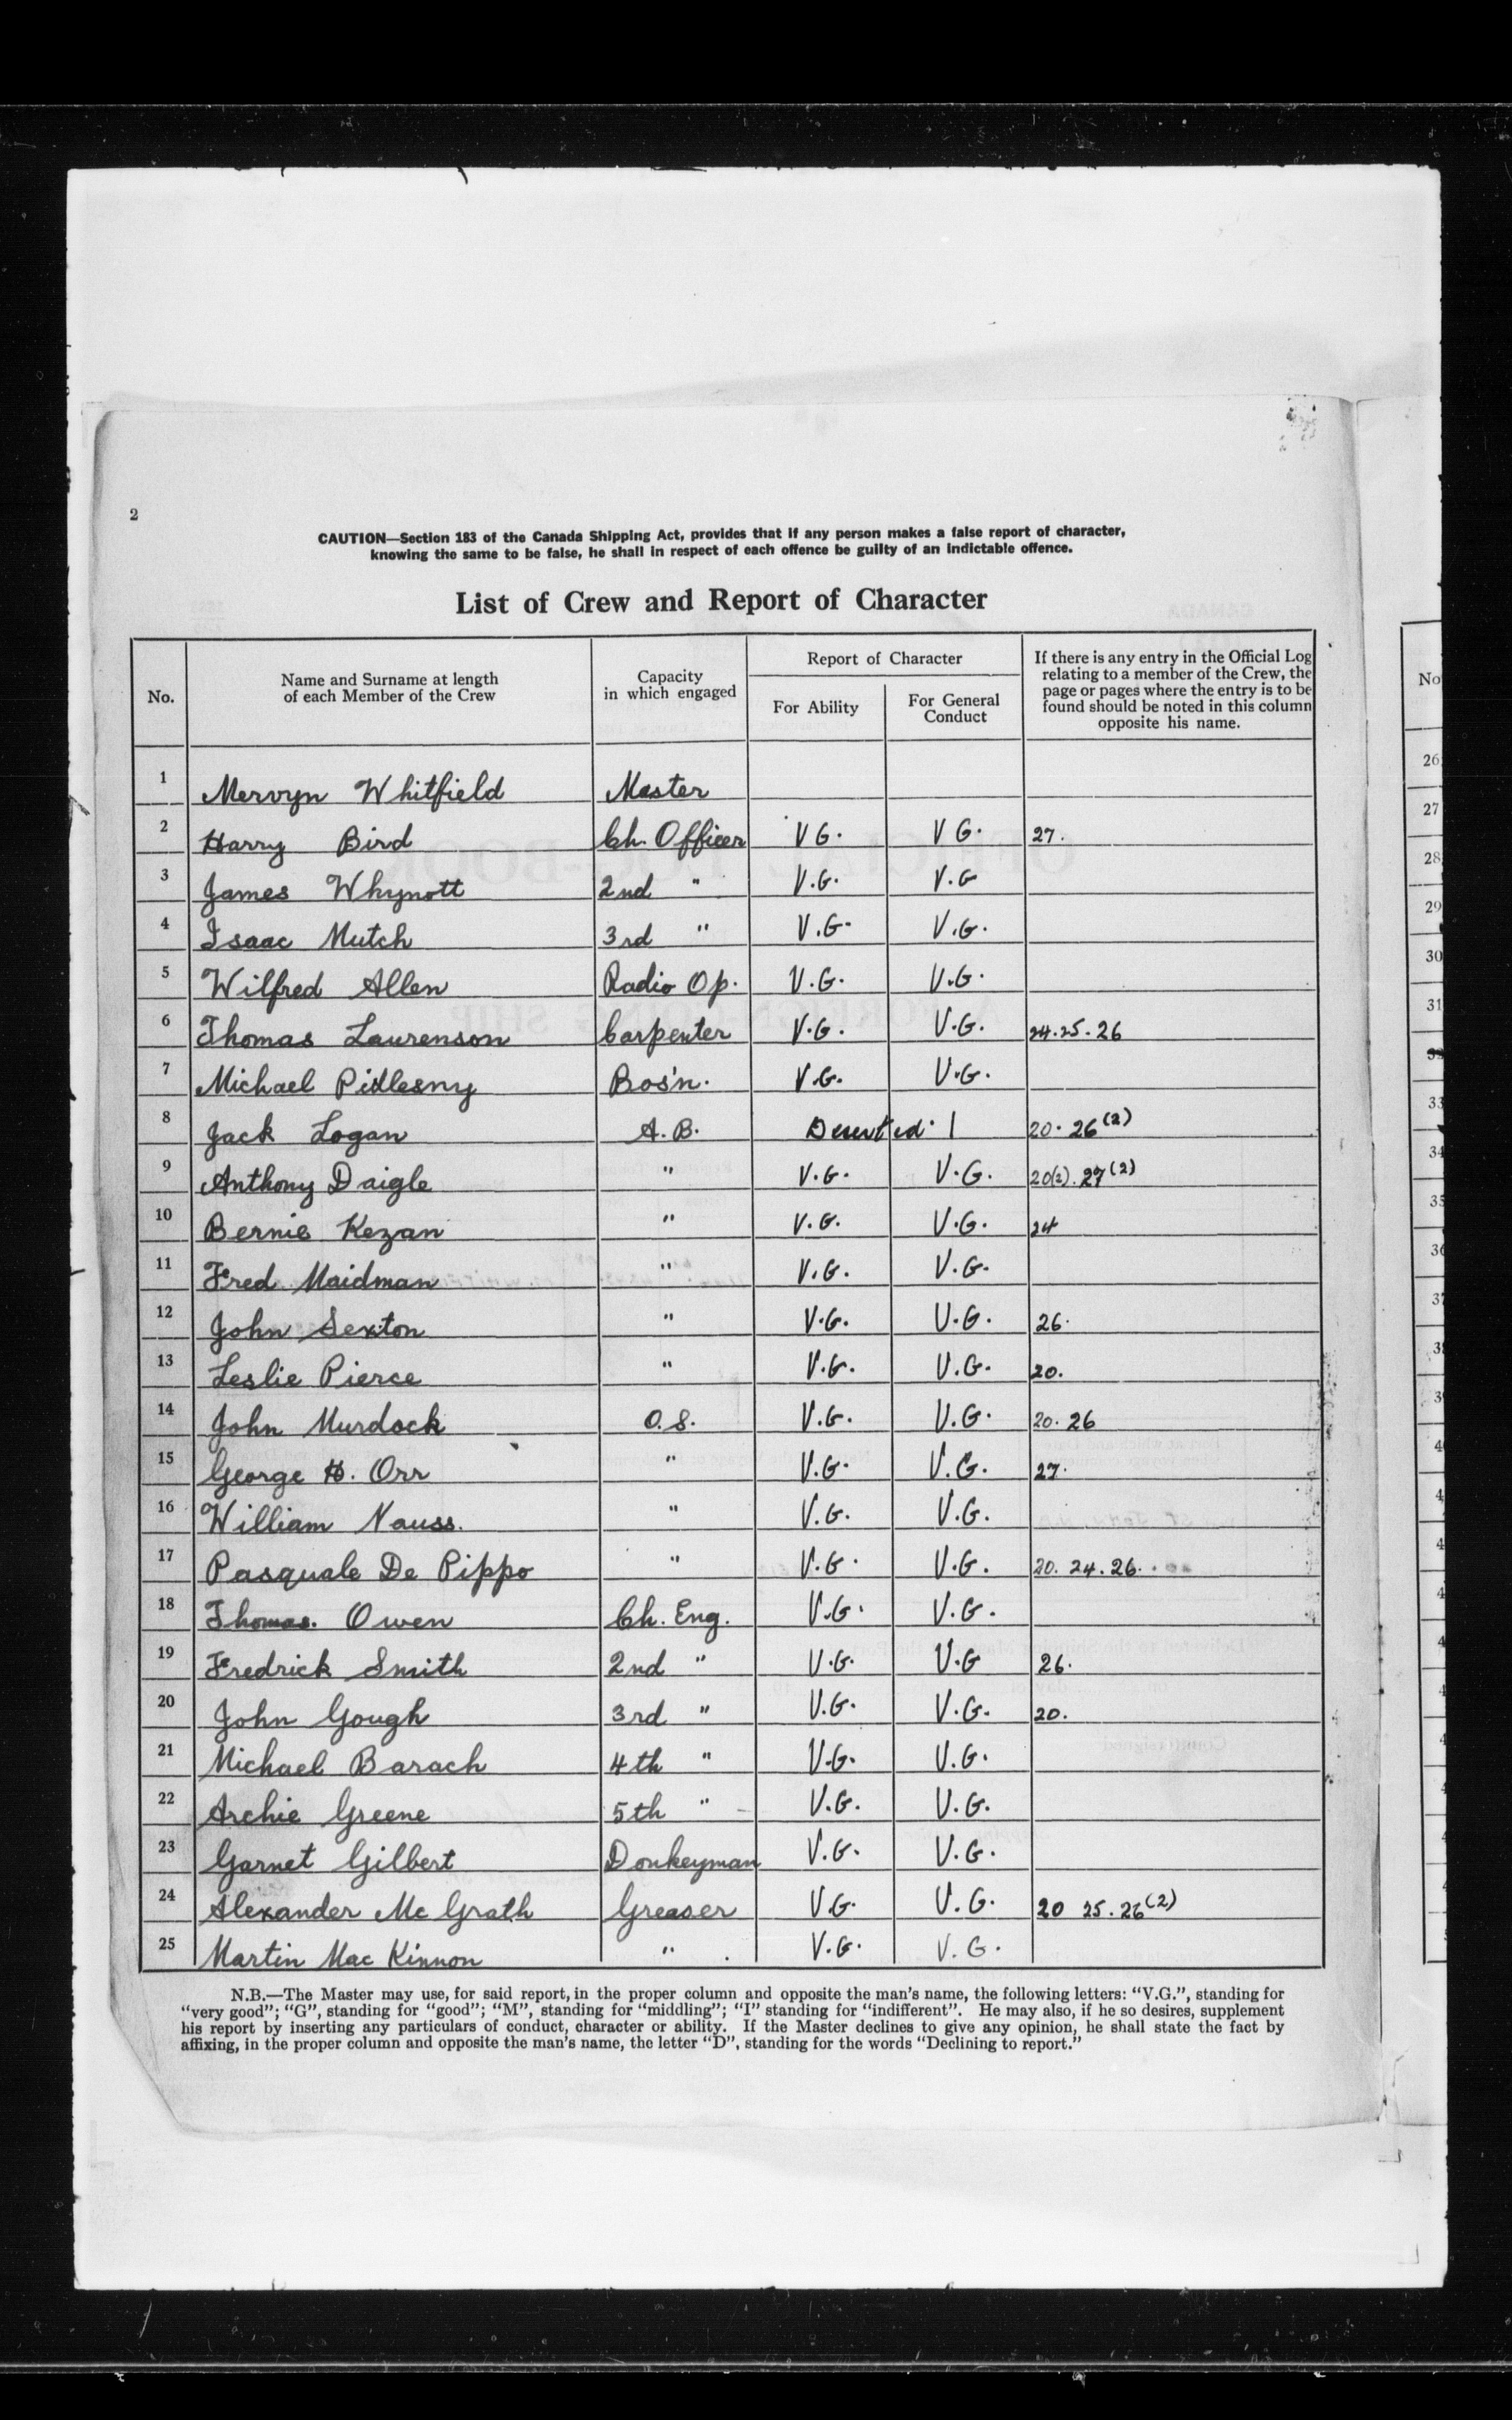 2
CAUTION—Section 183 of the Canada Shipping Act, provides that if any person makes a false report of character,
knowing the same to be false, he shall in respect of each offence be guilty of an indictable offence.
List of Crew and Report of Character
No. Name and Surname at length of each Member of the Crew Capacity in which engaged Report of Character For Ability For General Conduct If there is any entry in the Official Log relating to a member of the Crew, the page or pages where the entry is to be found should be noted in this column opposite his name.
1 Mervyn Whitfield Master
2 Harry Bird Ch. Officer V G. V G. 27.
3 James Whynott 2nd " V.G. V.G
4 Isaac Mutch 3rd " V.G. V.G.
5 Wilfred Allen Radio Op. V.G. V.G.
6 Thomas Laurenson Carpenter V.G. V.G. 24.25.26
7 Michael Pidlesny Bos'n. V.G. V.G.
8 Jack Logan A.B. Deserted. 20. 26(2)
9 Anthony Daigle " V.G. V.G. 20(2). 27(2)
10 Bernie Kezan " V.G. V.G. 24
11 Fred Maidman " V.G. V.G.
12 John Sexton " V.G. V.G. 26.
13 Leslie Pierce " V.G. V.G. 20.
14 John Murdock O.S. V.G. V.G. 20. 26
15 George H. Orr " V.G. V.G. 27.
16 William Nauss. " V.G. V.G.
17 Pasquale De Pippo " V.G. V.G. 20. 24. 26.
18 Thomas. Owen Ch. Eng. V.G. V.G.
19 Fredrick Smith 2nd " V.G. V.G 26.
20 John Gough 3rd " V.G. V.G. 20.
21 Michael Barach 4th " V.G. V.G.
22 Archie Greene 5th " V.G. V.G.
23 Garnet Gilbert Donkeyman V.G. V.G.
24 Alexander Mc Grath Greaser V.G. V.G. 20 25. 26(2)
25 Martin Mac Kinnon " V.G. V.G.
N.B.—The Master may use, for said report, in the proper column and opposite the man's name, the following letters: "V.G.", standing for
"very good"; "G", standing for "good"; "M", standing for "middling"; "I" standing for "indifferent". He may also, if he so desires, supplement
his report by inserting any particulars of conduct, character or ability. If the Master declines to give any opinion, he shall state the fact by
affixing, in the proper column and opposite the man's name, the letter "D", standing for the words "Declining to report."
No
26
27
28
29
30
31
33
34
35